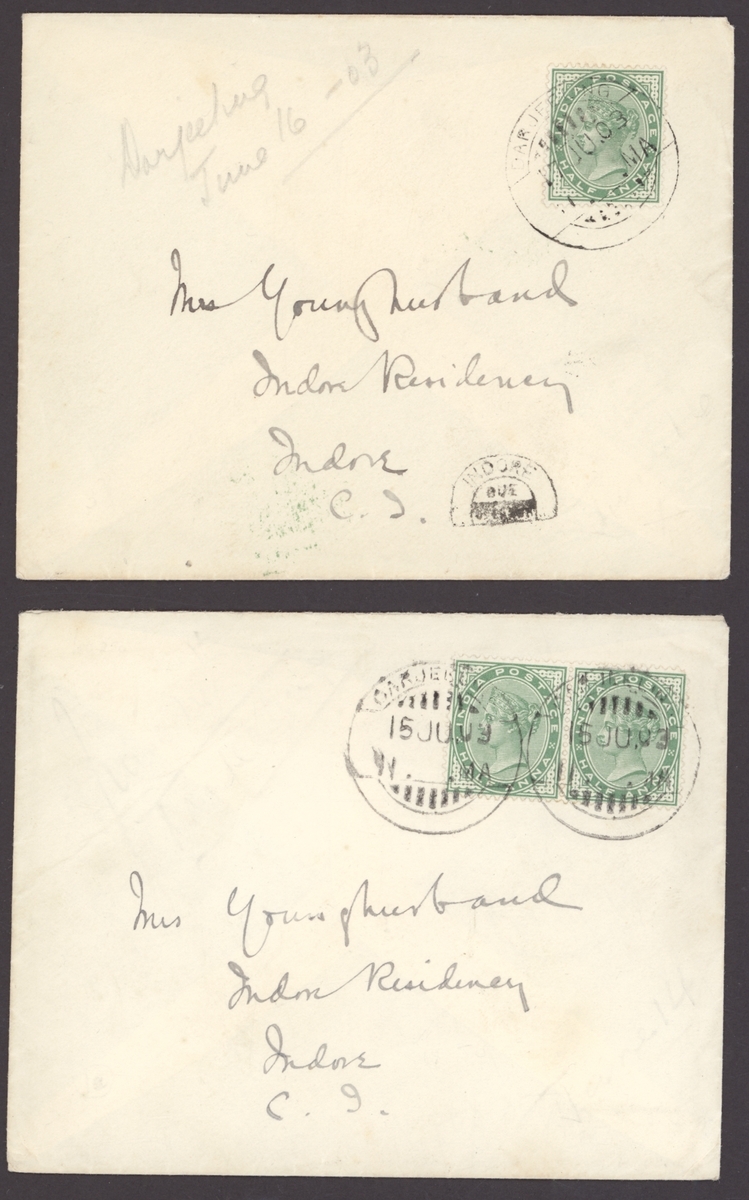 Darjeeling
June 16 - 03
INDIA POSTAGE
HALF ANNA
DARJEELING
JU.03
Mrs Younghusband
Indore Residency
Indore
C. I.
INDORE
DUE
DARJEE
15JU.03
INDIA POSTAGE
HALF ANNA
5JU.03
INDIA POSTAGE
HALF ANNA
Mrs Younghusband
Indore Residency
Indore
C. I.